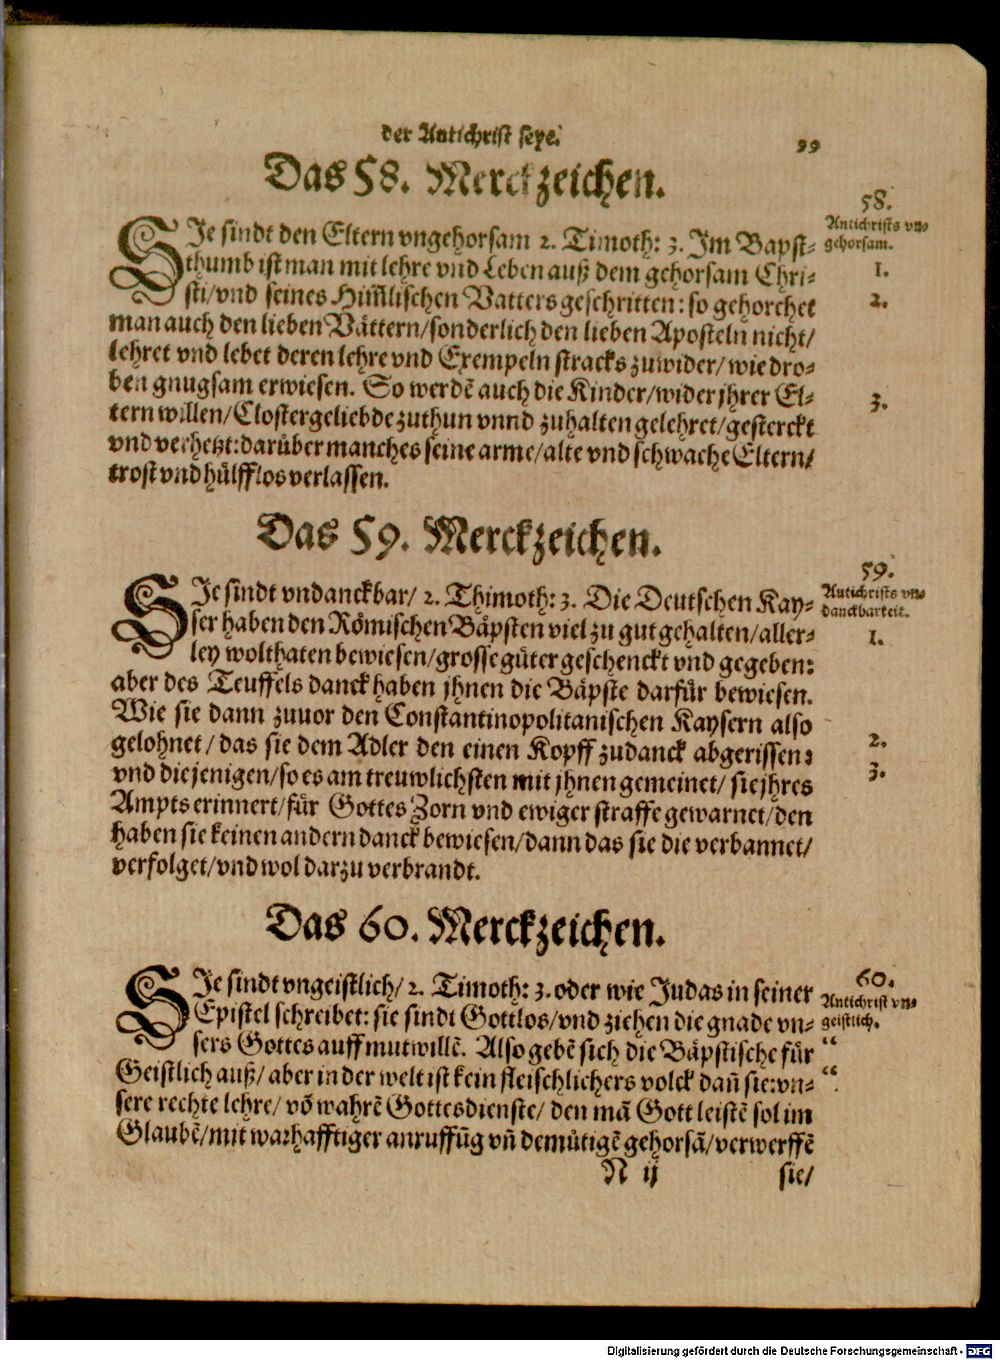 der Antichrist seye.
99
Das 58. Merckzeichen.
58.
Antichrists vn-
gehorsam.
SJe sindt den Eltern vngehorsam 2. Timoth: 3. Jm Bapst-
thumb ist man mit lehre vnd Leben auß dem gehorsam Chri-
1.
sti/vnd seines Him̃lischen Vatters geschritten: so gehorchet
2.
man auch den lieben Vättern/sonderlich den lieben Aposteln nicht/
lehret vnd lebet deren lehre vnd Exempeln stracks zuwider/wie dro-
ben gnugsam erwiesen. So werdẽ auch die Kinder/wider jhrer El-
3.
tern willen/Clostergeliebde zuthun vnnd zuhalten gelehret/gesterckt
vnd verhetzt: darüber manches seine arme/alte vnd schwache Eltern/
trost vnd hülfflos verlassen.
Das 59. Merckzeichen.
59.
Antichrists vn-
danckbarkeit.
SJe sindt vndanckbar/ 2. Thimoth: 3. Die Deutschen Kay-
ser haben den Römischen Bäpsten viel zu gut gehalten/aller-
1.
ley wolthaten bewiesen/grosse güter geschenckt vnd gegeben:
aber des Teuffels danck haben jhnen die Bäpste darfür bewiesen.
Wie sie dann zuuor den Constantinopolitanischen Kaysern also
gelohnet/das sie dem Adler den einen Kopff zudanck abgerissen:
2.
vnd diejenigen/so es am treuwlichsten mit jhnen gemeinet/ sie jhres
3.
Ampts erinnert/für Gottes Zorn vnd ewiger straffe gewarnet/den
haben sie keinen andern danck bewiesen/dann das sie die verbannet/
verfolget/vnd wol darzu verbrandt.
Das 60. Merckzeichen.
60.
Antichrist vn-
geistlich.
SJe sindt vngeistlich/ 2. Timoth: 3. oder wie Judas in seiner
Epistel schreibet: sie sindt Gottlos/vnd ziehen die gnade vn-
sers Gottes auff mutwillẽ. Also gebẽ sich die Bäpstische für
“
Geistlich auß/ aber in der welt ist kein fleischlichers volck dañ sie: vn-
“
sere rechte lehre/ võ wahrẽ Gottesdienste/ den mã Gott leistẽ sol im
Glaubẽ/mit warhafftiger anruffũg vñ demütigẽ gehorsã/verwerffẽ
N ij
sie/
Digitalisierung gefördert durch die Deutsche Forschungsgemeinschaft - DFG